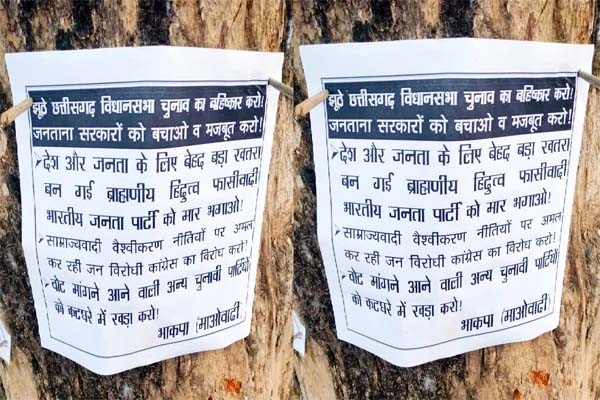 झूठे छत्तीसगढ़ विधानसभा चुनाव का बहिष्कार करो!
जनताना सरकारों को बचाओ व मजबूत करो!
देश और जनता के लिए बेहद बड़ा खतरा
बन गई ब्राह्मणीय हिंदुत्व फासीवादी
भारतीय जनता पार्टी को मार भगाओ!
साम्राज्यवादी वैश्वीकरण नीतियों पर अमल
कर रही जन विरोधी कांग्रेस का विरोध करो!
वोट मांगने आने वाली अन्य चुनावी पार्टियों
को कटघरे में खड़ा करो!
भाकपा (माओवादी)
झूठे छत्तीसगढ़ विधानसभा चुनाव का बहिष्कार करो!
जनताना सरकारों को बचाओ व मजबूत करो!
देश और जनता के लिए बेहद बड़ा खतरा
बन गई ब्राह्मणीय हिंदुत्व फासीवादी
भारतीय जनता पार्टी को मार भगाओ!
साम्राज्यवादी वैश्वीकरण नीतियों पर अमल
कर रही जन विरोधी कांग्रेस का विरोध करो!
वोट मांगने आने वाली अन्य चुनावी पार्टियों
को कटघरे में खड़ा करो!
भाकपा (माओवादी)